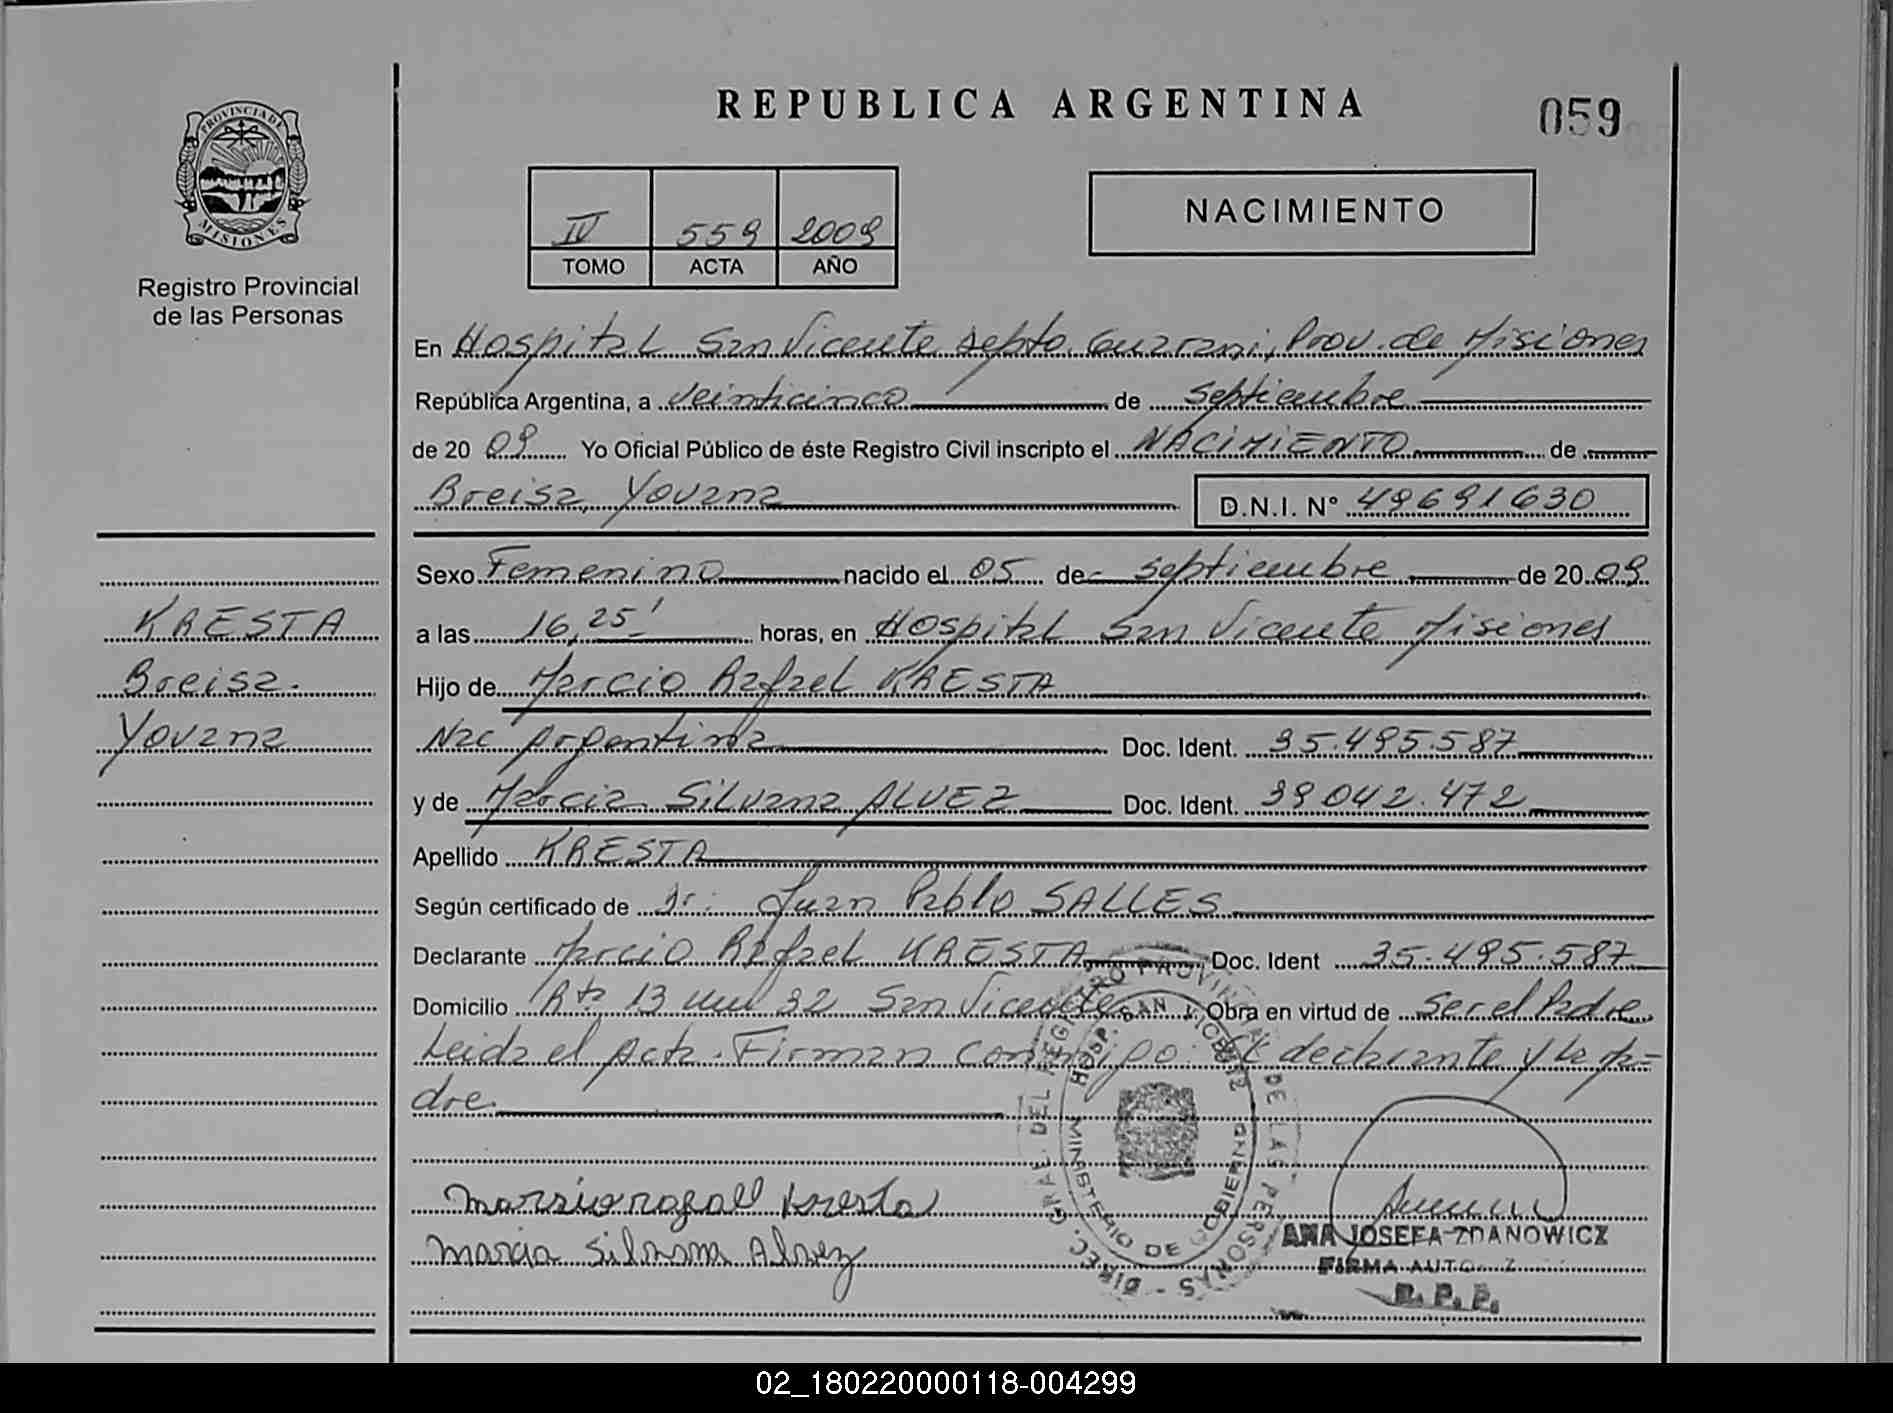 REPUBLICA ARGENTINA
059
PROVINCIA DE
MISIONES
Registro Provincial
de las Personas
IV 559 2009
TOMO ACTA AÑO
NACIMIENTO
En Hospital San Vicente Depto. Guarani, Prov. de Misiones
República Argentina, a veinticinco de septiembre
de 20 09 Yo Oficial Público de éste Registro Civil inscripto el NACIMIENTO de
Breisa, Yovana D.N.I. N° 49691630
Sexo Femenino nacido el 05 de septiembre de 20 09
a las 16,25' horas, en Hospital San Vicente Misiones
Hijo de Marcio Rafael KRESTA
Nac Argentina Doc. Ident. 35.495.587
y de Marcia Silvana ALVEZ Doc. Ident. 39.042.472
Apellido KRESTA
Según certificado de Dr. Juan Pablo SALLES
Declarante Marcio Rafael KRESTA Doc. Ident 35.495.587
Domicilio Rta 13 km 32 San Vicente Obra en virtud de Ser el Padre
Leida el Acta. Firman conmigo: El declarante y la ma=
dre
KRESTA
Breisa.
Yovana
marsio rafael kresta
marcia silvana Alvez
DIREC. GRAL. DEL REGISTRO PROVINCIAL DE LAS PERSONAS -
HOSP. SAN VICENTE
MINISTERIO DE GOBIERNO
ANA JOSEFA ZDANOWICZ
FIRMA
R. P. P.
02_180220000118-004299